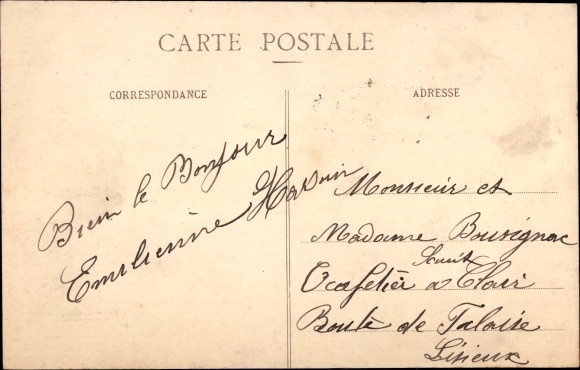 CARTE POSTALE
CORRESPONDANCE
ADRESSE
Bien le Bonjour
Emilienne
Monsieur et
Madame Bousignac
Saint
Ocafetier a Clair
Route de Falaise
Lisieux